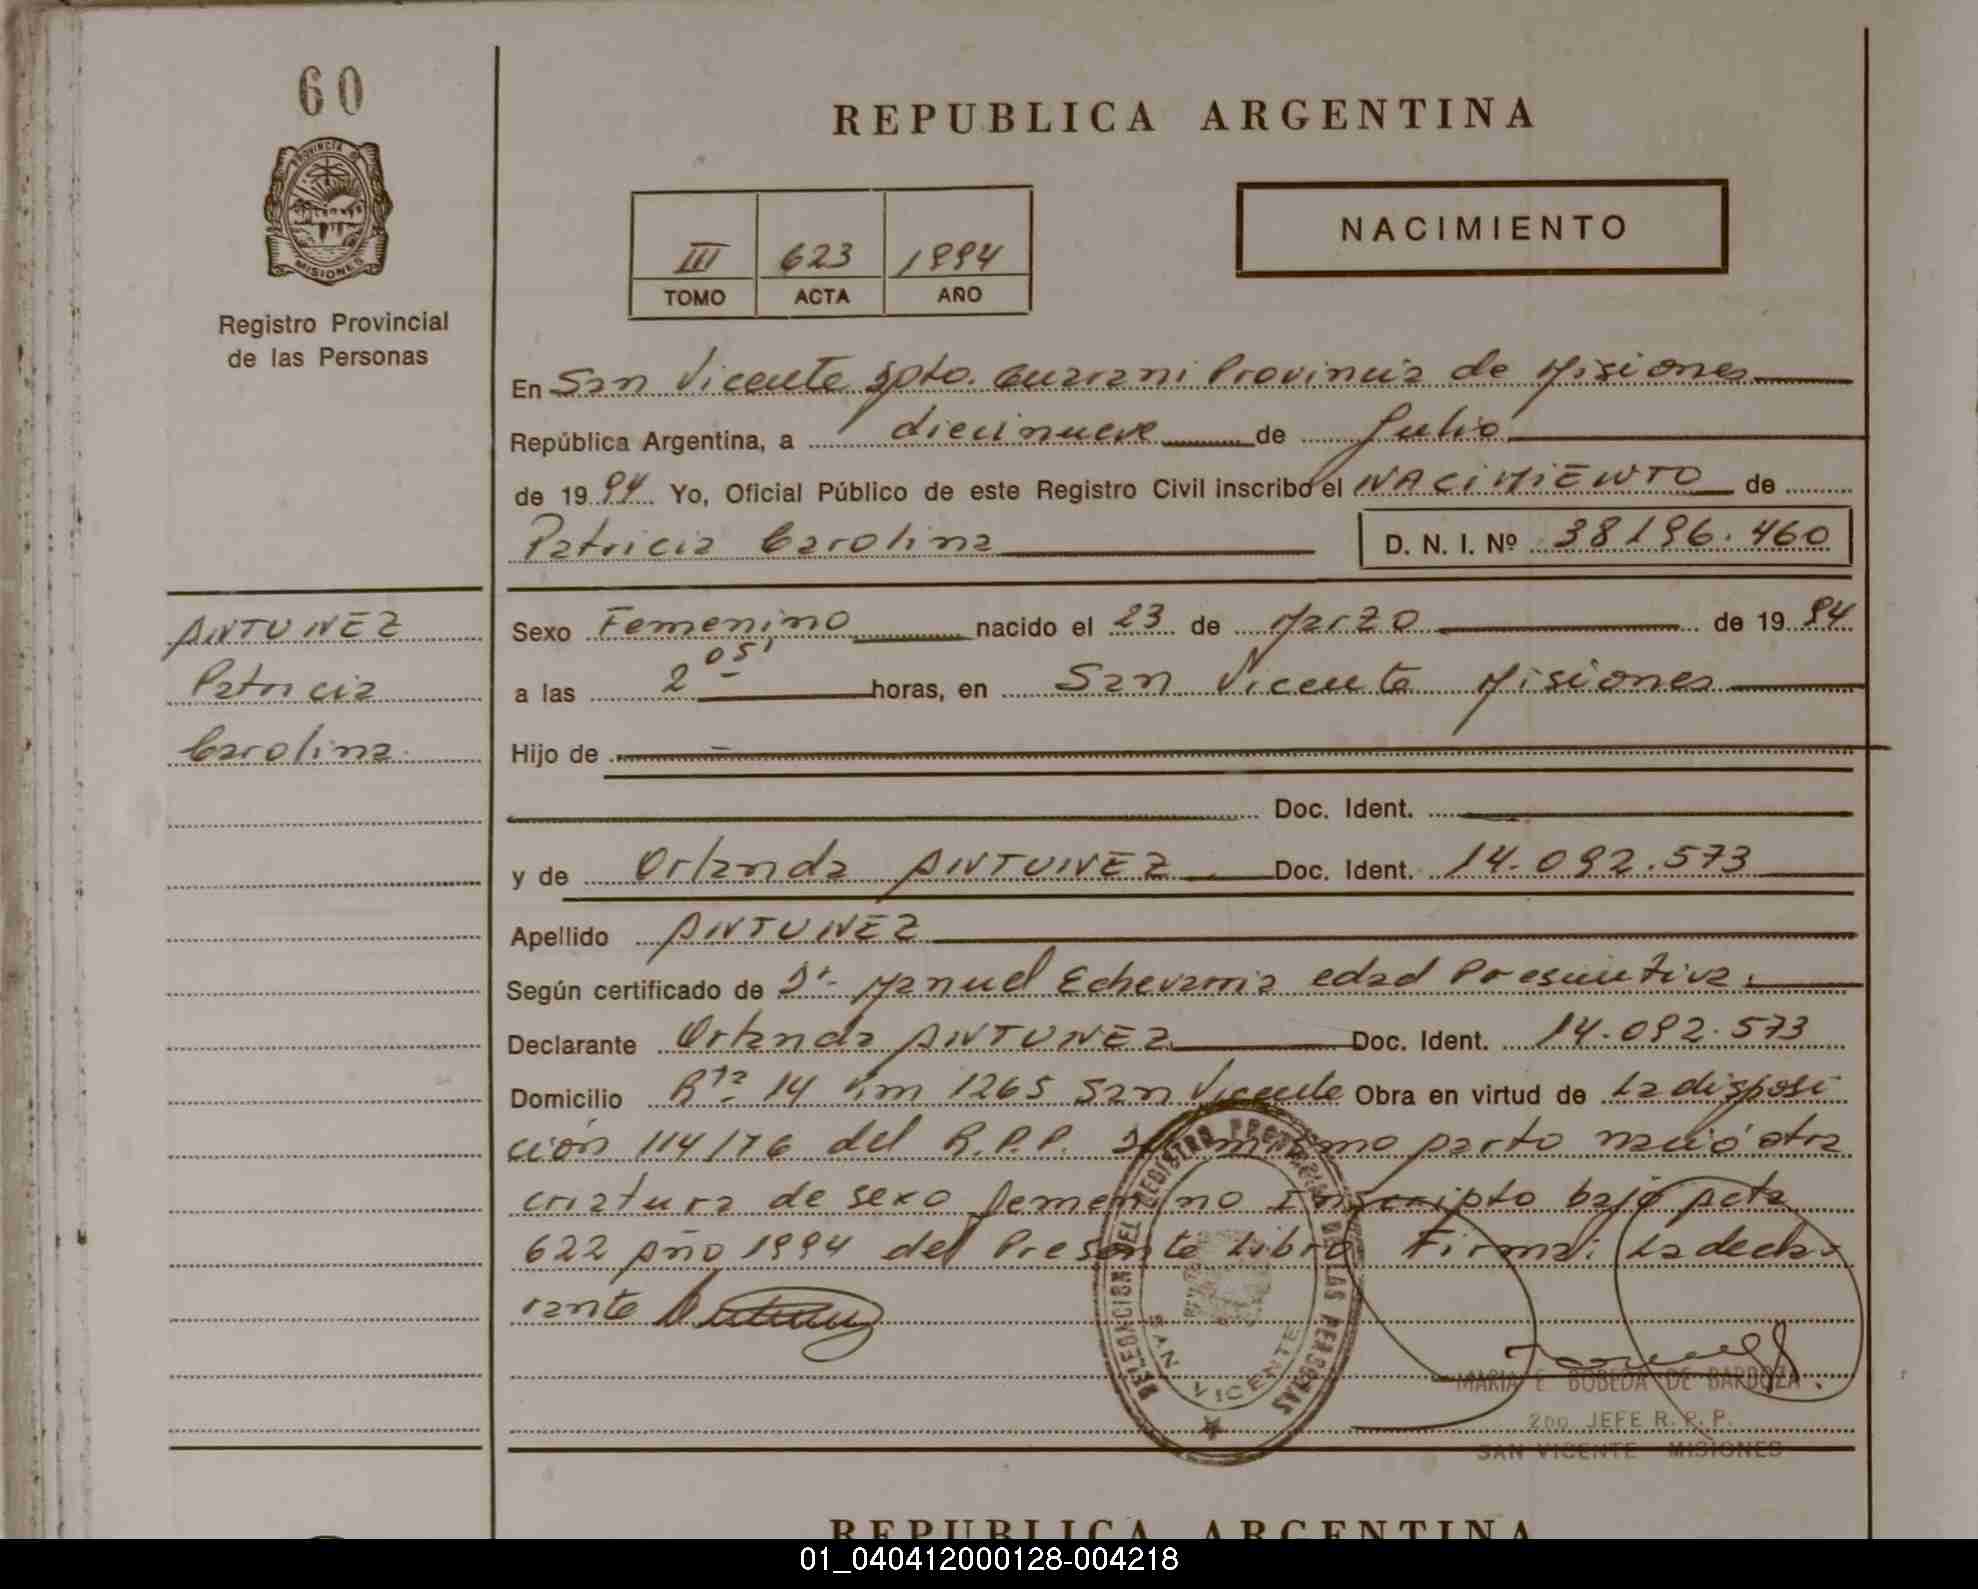 60
REPUBLICA ARGENTINA
PROVINCIA DE
MISIONES
NACIMIENTO
III 623 1994
TOMO ACTA AÑO
Registro Provincial
de las Personas
En San Vicente Dpto. Guarani Provincia de Misiones
República Argentina, a diecinueve de Julio
de 1994 Yo, Oficial Público de este Registro Civil inscribo el NACIMIENTO de
Patricia Carolina D. N. I. Nº 38196.460
ANTUNEZ
Patricia
Carolina.
Sexo Femenino nacido el 23 de Marzo de 1994
a las 2 05' horas, en San Vicente Misiones
Hijo de
Doc. Ident.
y de Orlanda ANTUNEZ Doc. Ident. 14.092.573
Apellido ANTUNEZ
Según certificado de Dr. Manuel Echevarria edad Presuntiva.
Declarante Orlanda ANTUNEZ Doc. Ident. 14.092.573
Domicilio Rta. 14 Km 1265 San Vicente Obra en virtud de La disposi
ción 114/76 del R.P.P. Del mismo parto nació otra
criatura de sexo femenino Inscripto bajo acta
622 Año 1994 del Presente Libro. Firma: La decla-
rante
DELEGACION DEL REGISTRO PROVINCIAL DE LAS PERSONAS
SAN VICENTE
MARIA E. BOBEDA DE BARBOZA
2DO JEFE R. P. P.
SAN VICENTE MISIONES
REPUBLICA ARGENTINA
01_040412000128-004218